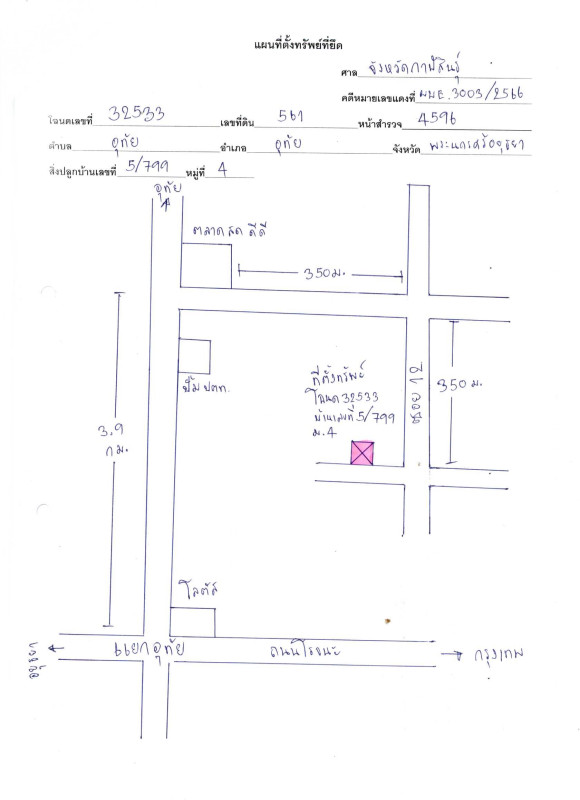 แผนที่ตั้งทรัพย์ที่ยึด
ศาล จังหวัดกาฬสินธุ์
คดีหมายเลขแดงที่ ผบE.3003/2566
โฉนดเลขที่ 32533 เลขที่ดิน 561 หน้าสำรวจ 4596
ตำบล อุทัย อำเภอ อุทัย จังหวัด พระนครศรีอยุธยา
สิ่งปลูกบ้านเลขที่ 5/799 หมู่ที่ 4
อุทัย
ตลาดสด ดีดี
350 ม.
ปั๊ม ปตท.
ที่ตั้งทรัพย์
โฉนด 32533
บ้านเลขที่ 5/799
ม.4
ซอย 12
350 ม.
3.9
กม.
โลตัส
แยกอุทัย
ถนนโรจนะ
กรุงเทพ